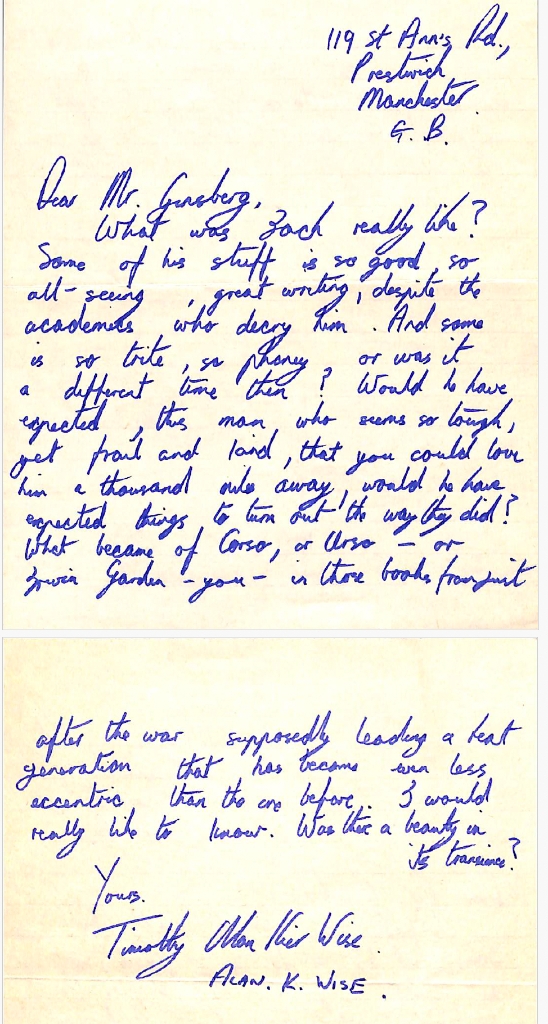 119 St Ann's Rd.,
Prestwich
Manchester.
G. B.
Dear Mr. Ginsberg,
What was Jack really like?
Some of his stuff is so good, so
all-seeing, great writing, despite the
academics who decry him. And some
is so trite, so phoney or was it
a different time then? Would he have
expected, this man, who seems so tough,
yet frail and kind, that you could love
him a thousand miles away, would he have
expected things to turn out the way they did?
What became of Corso, or Urso - or
Irwin Garden - you - in those books from just
after the war supposedly leading a beat
generation that has become even less
eccentric than the one before. I would
really like to know. Was there a beauty in
its transience?
Yours.
Timothy Wise.
ALAN. K. WISE.